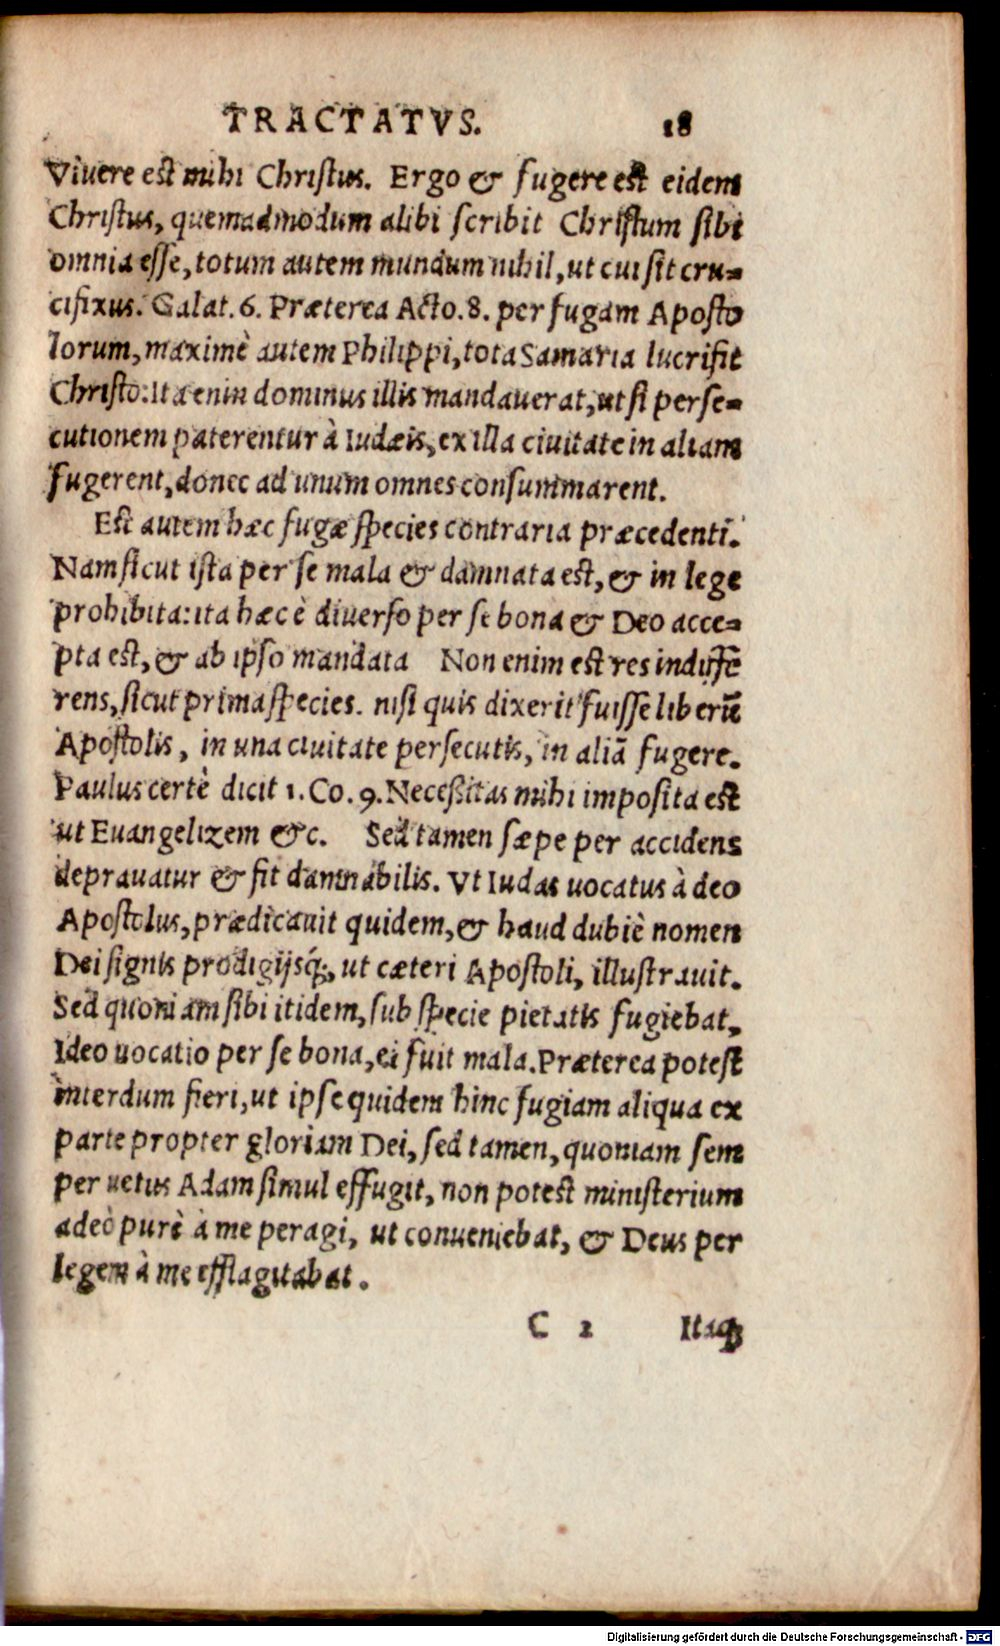 TRACTATVS. 18
Viuere est mihi Christus. Ergo & fugere est eidem
Christus, quemadmodum alibi scribit Christum sibi
omnia esse, totum autem mundum nihil, ut cui sit cru-
cifixus. Galat. 6. Præterea Acto. 8. per fugam Aposto
lorum, maximè autem Philippi, tota Samaria lucrifit
Christo: Ita enim dominus illis mandauerat, ut si perse-
cutionem paterentur à Iudæis, ex illa ciuitate in aliam
fugerent, donec ad unum omnes consummarent.
Est autem hæc fugæ species contraria præcedenti.
Nam sicut ista per se mala & damnata est, & in lege
prohibita: ita hæc è diuerso per se bona & Deo acce-
pta est, & ab ipso mandata Non enim est res indiffe
rens, sicut prima species. nisi quis dixerit fuisse liberũ
Apostolis, in una ciuitate persecutis, in aliã fugere.
Paulus certè dicit 1. Co. 9. Necessitas mihi imposita est
ut Euangelizem &c. Sed tamen sæpe per accidens
deprauatur & fit damnabilis. Vt Iudas uocatus à deo
Apostolus, prædicauit quidem, & haud dubiè nomen
Dei signis prodigijsq́;, ut cæteri Apostoli, illustrauit.
Sed quoniam sibi itidem, sub specie pietatis fugiebat,
Ideo uocatio per se bona, ei fuit mala. Præterea potest
interdum fieri, ut ipse quidem hinc fugiam aliqua ex
parte propter gloriam Dei, sed tamen, quoniam sem
per uetus Adam simul effugit, non potest ministerium
adeò purè à me peragi, ut conueniebat, & Deus per
legem à me efflagitabat.
C 2 Itaqꝫ
Digitalisierung gefördert durch die Deutsche Forschungsgemeinschaft - DFG